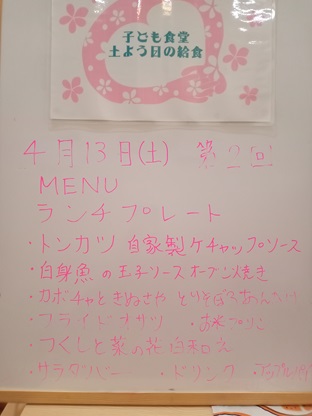 子ども食堂
土よう日の給食
4月13日(土) 第2回
MENU
ランチプレート
・トンカツ 自家製ケチャップソース
・白身魚の玉子ソースオーブン焼き
・カボチャときぬさや とりそぼろあんかけ
・フライドポテト ・お米プリン
・つくしと菜の花白和え
・サラダバー ・ドリンク